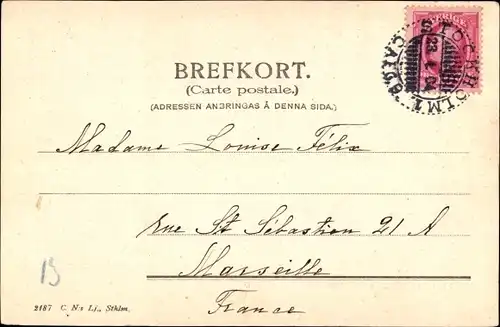 SVERIGE
STOCKHOLM 1
23 4 04
BREFKORT.
(Carte postale.)
(ADRESSEN ANBRINGAS Å DENNA SIDA.)
Madame Louise Félix
rue St Sébastien 21 A
Marseille
France
13
2187 C. N:s Lj., Sthlm.